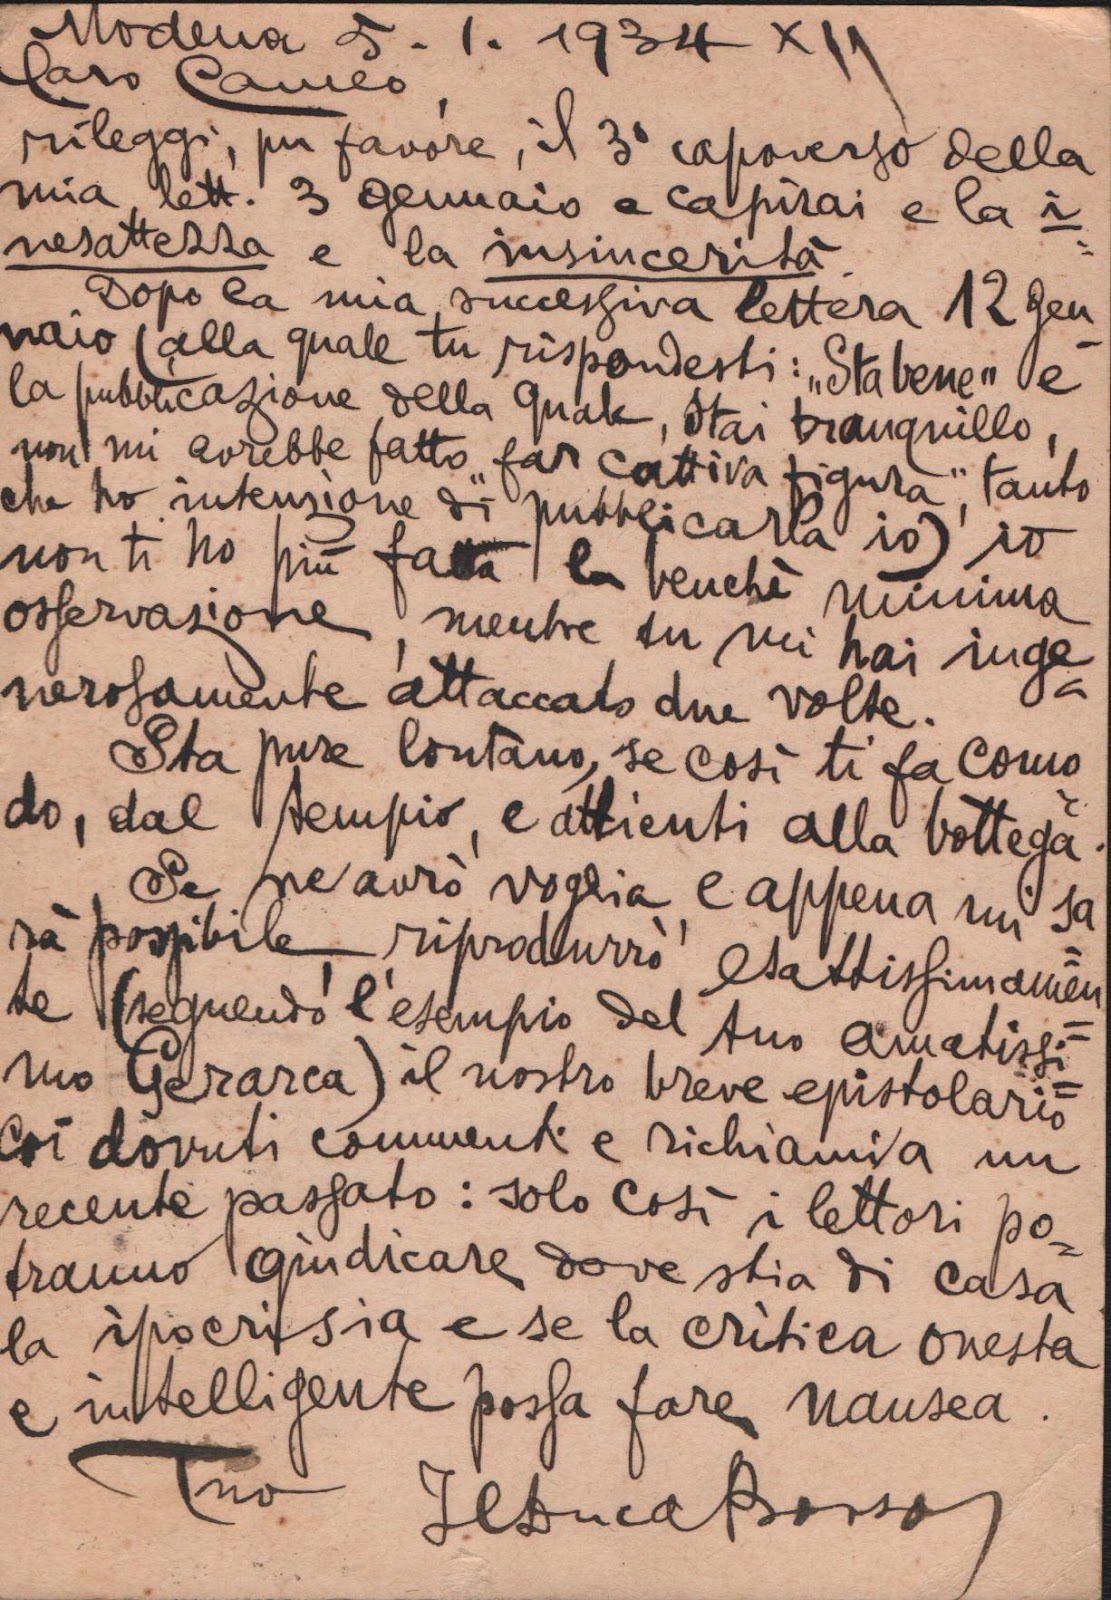 Modena 5. 1. 1934 XII
Caro Cameo,
rileggi, per favore, il 3° capoverso della
mia lett. 3 gennaio e capirai e la i=
nesattezza e la insincerità.
Dopo la mia successiva lettera 12 gen
naio (alla quale tu rispondesti: "Sta bene" e
la pubblicazione della quale, stai tranquillo,
non mi avrebbe fatto "far cattiva figura", tanto
che ho intenzione di pubblicarla io) io
non ti ho più fatta la benchè minima
osservazione, mentre tu mi hai inge=
nerosamente attaccato due volte.
Sta pure lontano, se così ti fa como
do, dal tempio, e attienti alla bottega.
Se ne avrò voglia, e appena mi sa
rà possibile, riprodurrò esattissimamen=
te (seguendo l'esempio del tuo amatissi=
mo Gerarca) il nostro breve epistolario
coi dovuti commenti e richiami a un
recente passato: solo così i lettori po=
tranno giudicare dove stia di casa
la ipocrisia e se la critica onesta
e intelligente possa fare nausea.
Tuo Il Duca Borso